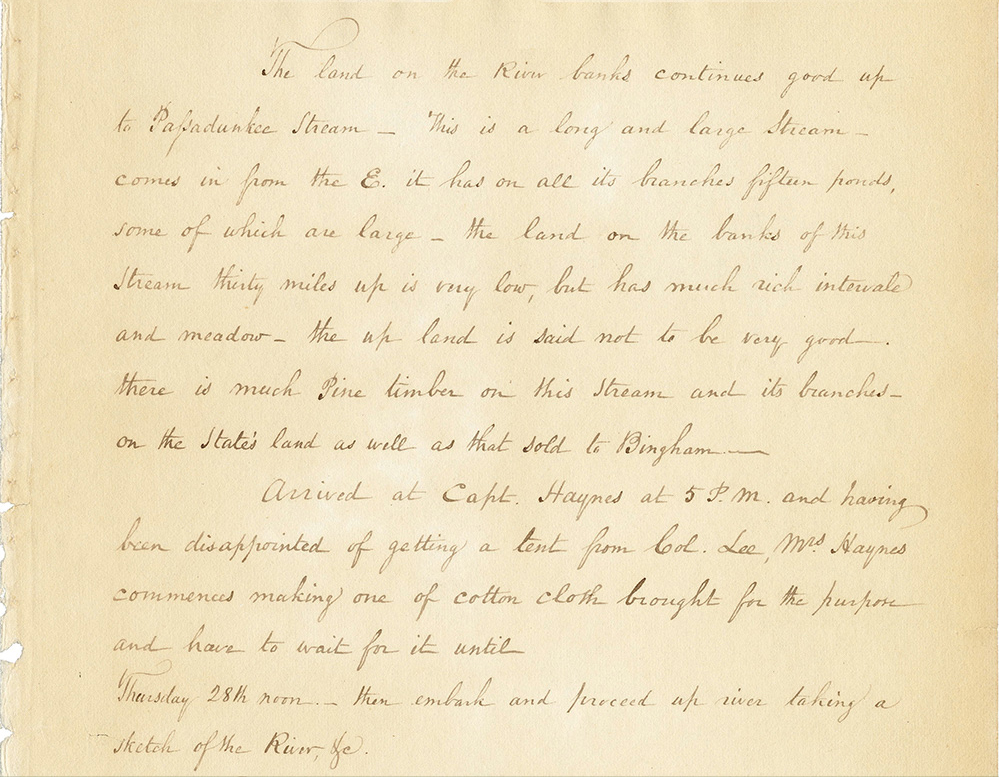 The land on the River banks continues good up
to Paſsadunkee Stream — This is a long and large Stream —
comes in from the E. it has on all its branches fifteen ponds,
some of which are large — the land on the banks of this
Stream thirty miles up is very low, but has much rich intervale
and meadow — the up land is said not to be very good —.
there is much Pine timber on this Stream and its branches —
on the State's land as well as that sold to Bingham —
Arrived at Capt. Haynes at 5 P.M. and having
been disappointed of getting a tent from Col. Lee, Mrs Haynes
commences making one of cotton cloth brought for the purpose
and have to wait for it until
Thursday 28th noon. — then embark and proceed up river taking a
sketch of the River, &c.